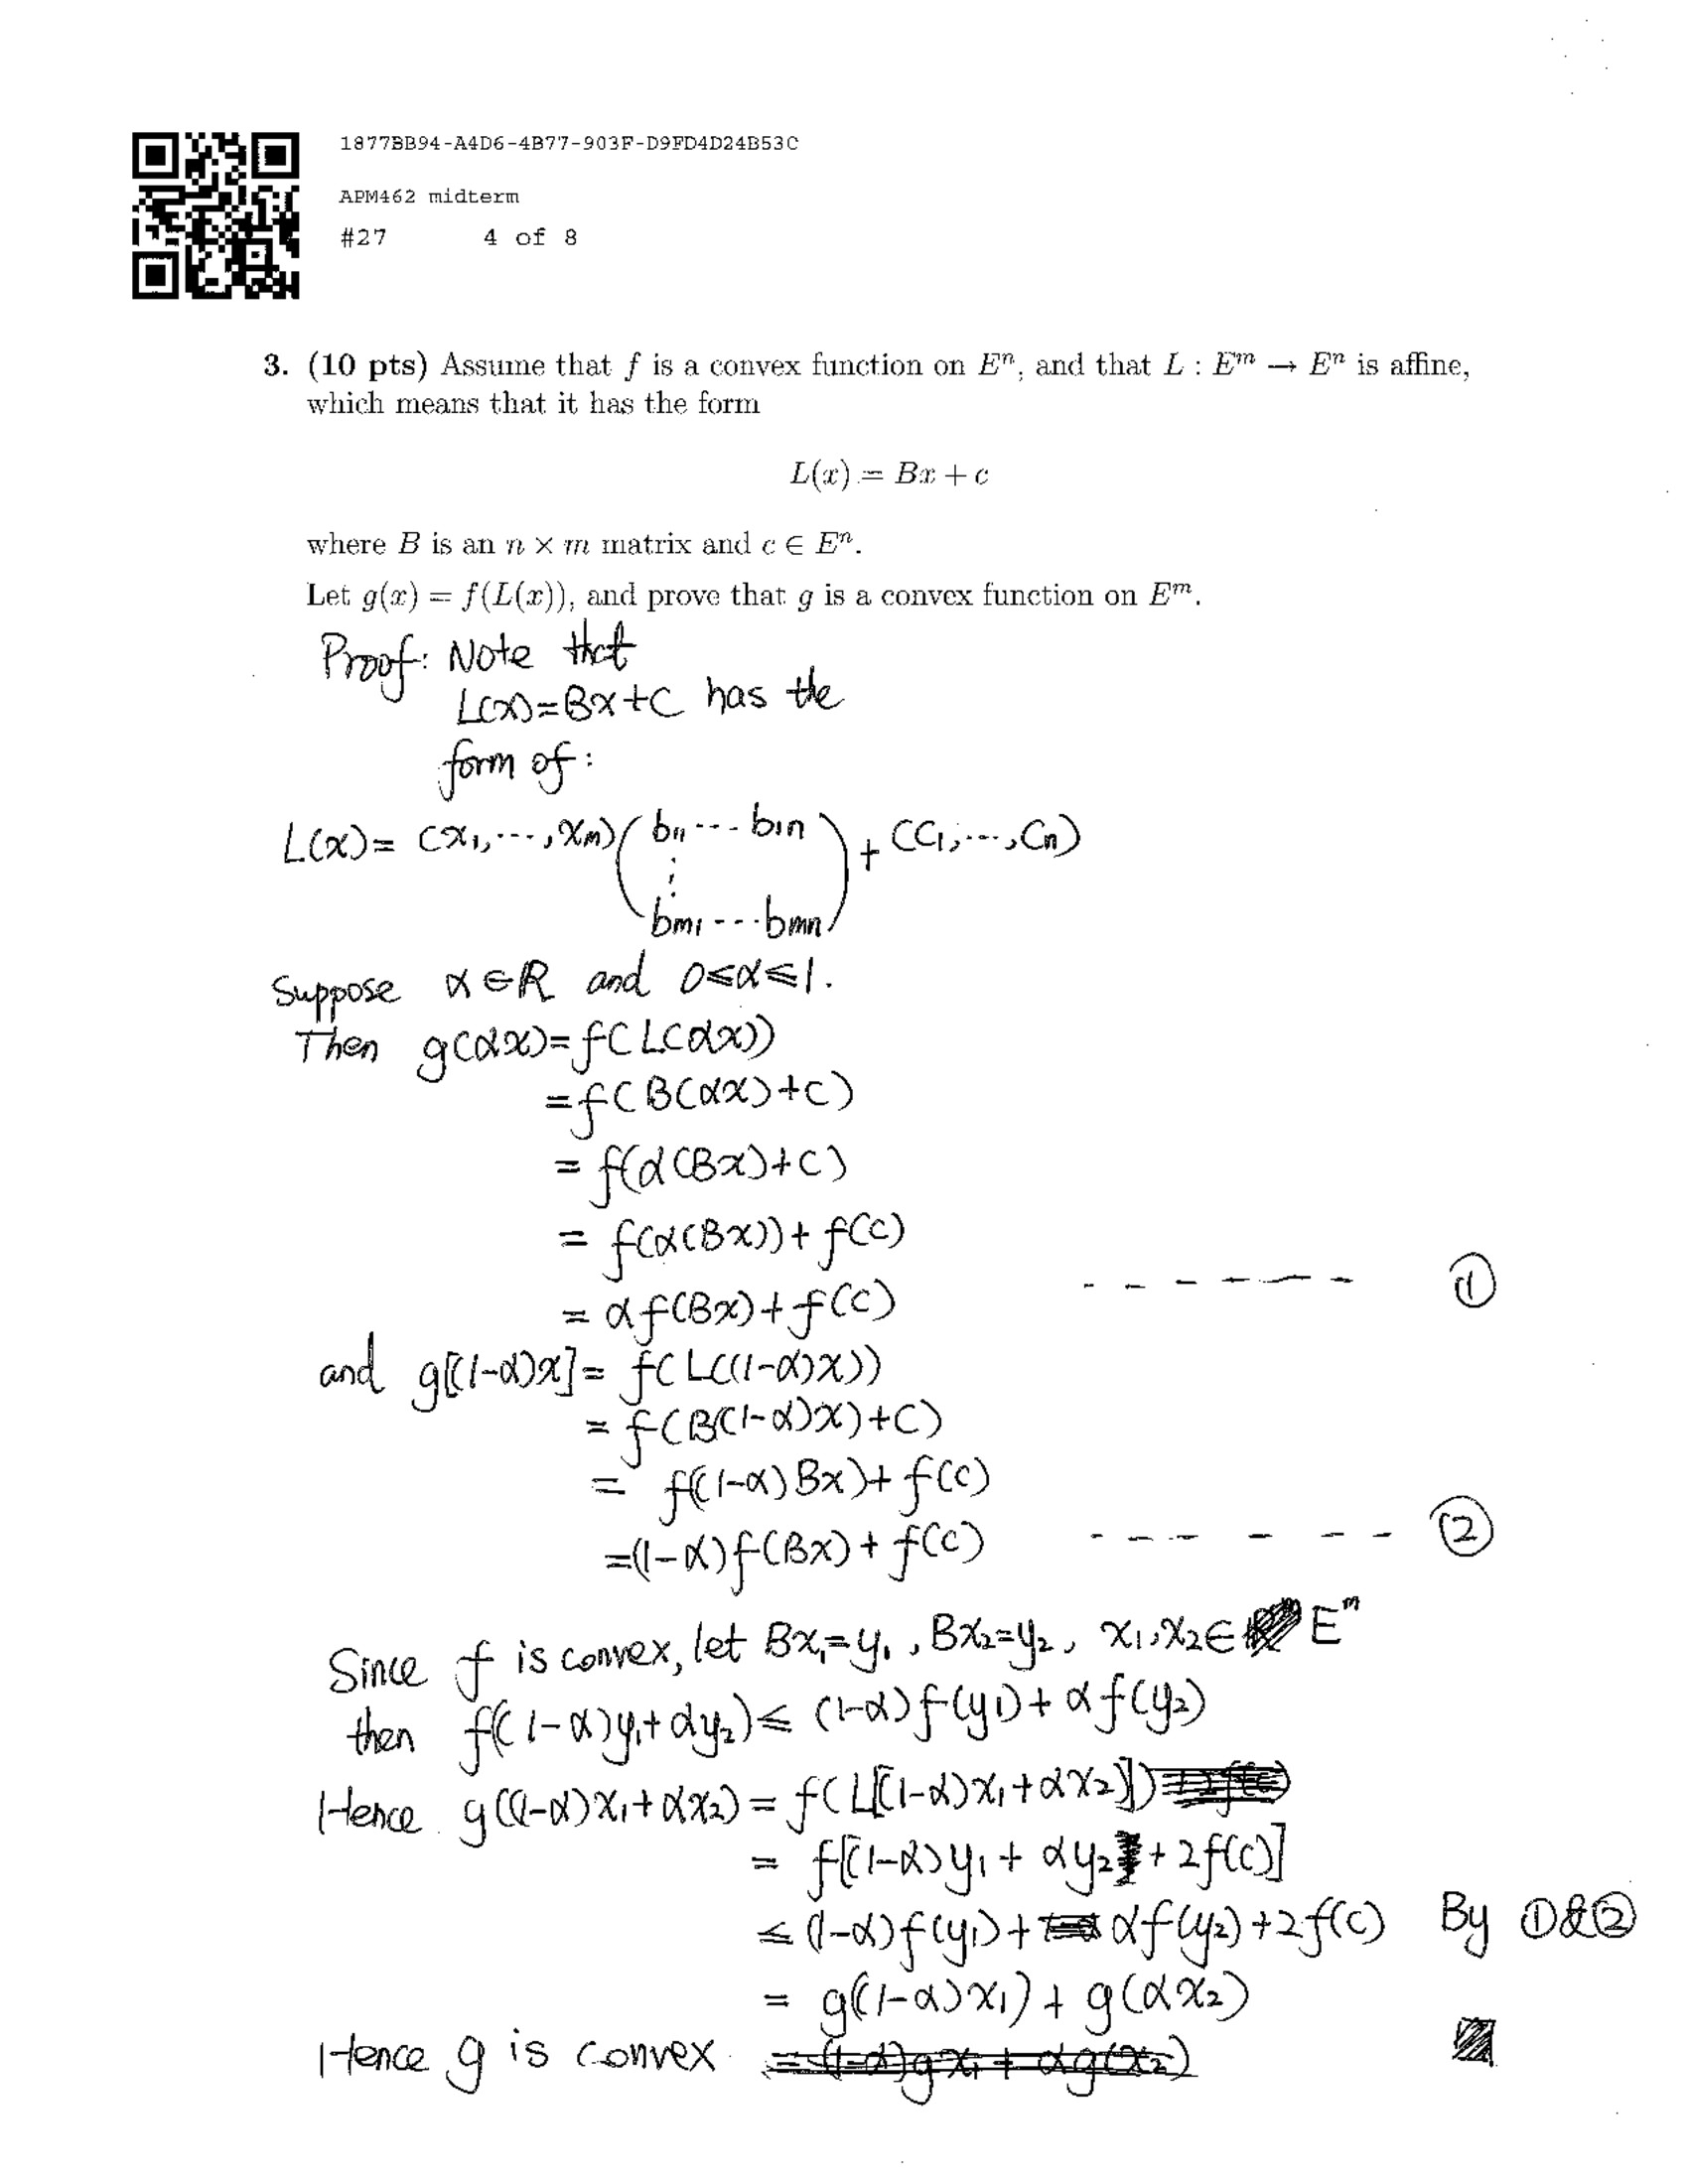 1877BB94-A4D6-4B77-903F-D9FD4D24B53C
APM462 midterm
#27 4 of 8
3. (10 pts) Assume that f is a convex function on Eⁿ, and that L : Eᵐ → Eⁿ is affine,
which means that it has the form
L(x) = Bx + c
where B is an n × m matrix and c ∈ Eⁿ.
Let g(x) = f(L(x)), and prove that g is a convex function on Eᵐ.
Proof: Note that
L(x)=Bx+C has the
form of:
L(x)= (x₁,⋯,xₘ)(b₁₁⋯b₁ₙ ⋮ bₘ₁⋯bₘₙ) + (C₁,⋯,Cₙ)
Suppose α∈ℝ and 0≤α≤1.
Then g(αx)=f(L(αx))
=f(B(αx)+c)
= f(α(Bx)+c)
= f(α(Bx))+f(c)
= αf(Bx)+f(c) ------ ①
and g[(1-α)x]= f(L((1-α)x))
= f(B(1-α)x)+C)
= f((1-α)Bx)+f(c)
=(1-α)f(Bx)+f(c) ------ ②
Since f is convex, let Bx₁=y₁, Bx₂=y₂, x₁,x₂∈ Eᵐ
then f((1-α)y₁+αy₂)≤ (1-α)f(y₁)+αf(y₂)
Hence g((1-α)x₁+αx₂)= f(L[(1-α)x₁+αx₂])
= f[(1-α)y₁+αy₂+2f(c)]
≤ (1-α)f(y₁)+αf(y₂)+2f(c) By ①&②
= g((1-α)x₁)+g(αx₂)
Hence g is convex = (1-α)gx₁+αg(x₂)